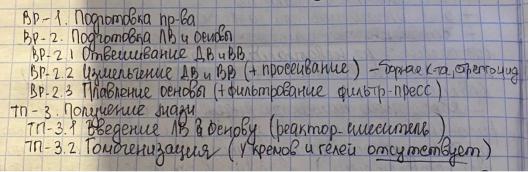 ВР-1. Подготовка пр-ва
ВР-2. Подготовка ЛВ и основы
ВР-2.1 Отвешивание ДВ и ВВ
ВР-2.2 Измельчение ДВ и ВВ (+просеивание) - борная к-та, стрептоцид
ВР-2.3 Плавление основы (+фильтрование фильтр-пресс)
ТП-3. Получение мази
ТП-3.1 Введение ЛВ в основу (реактор-смеситель)
ТП-3.2. Гомогенизация (у кремов и гелей отсутствует)